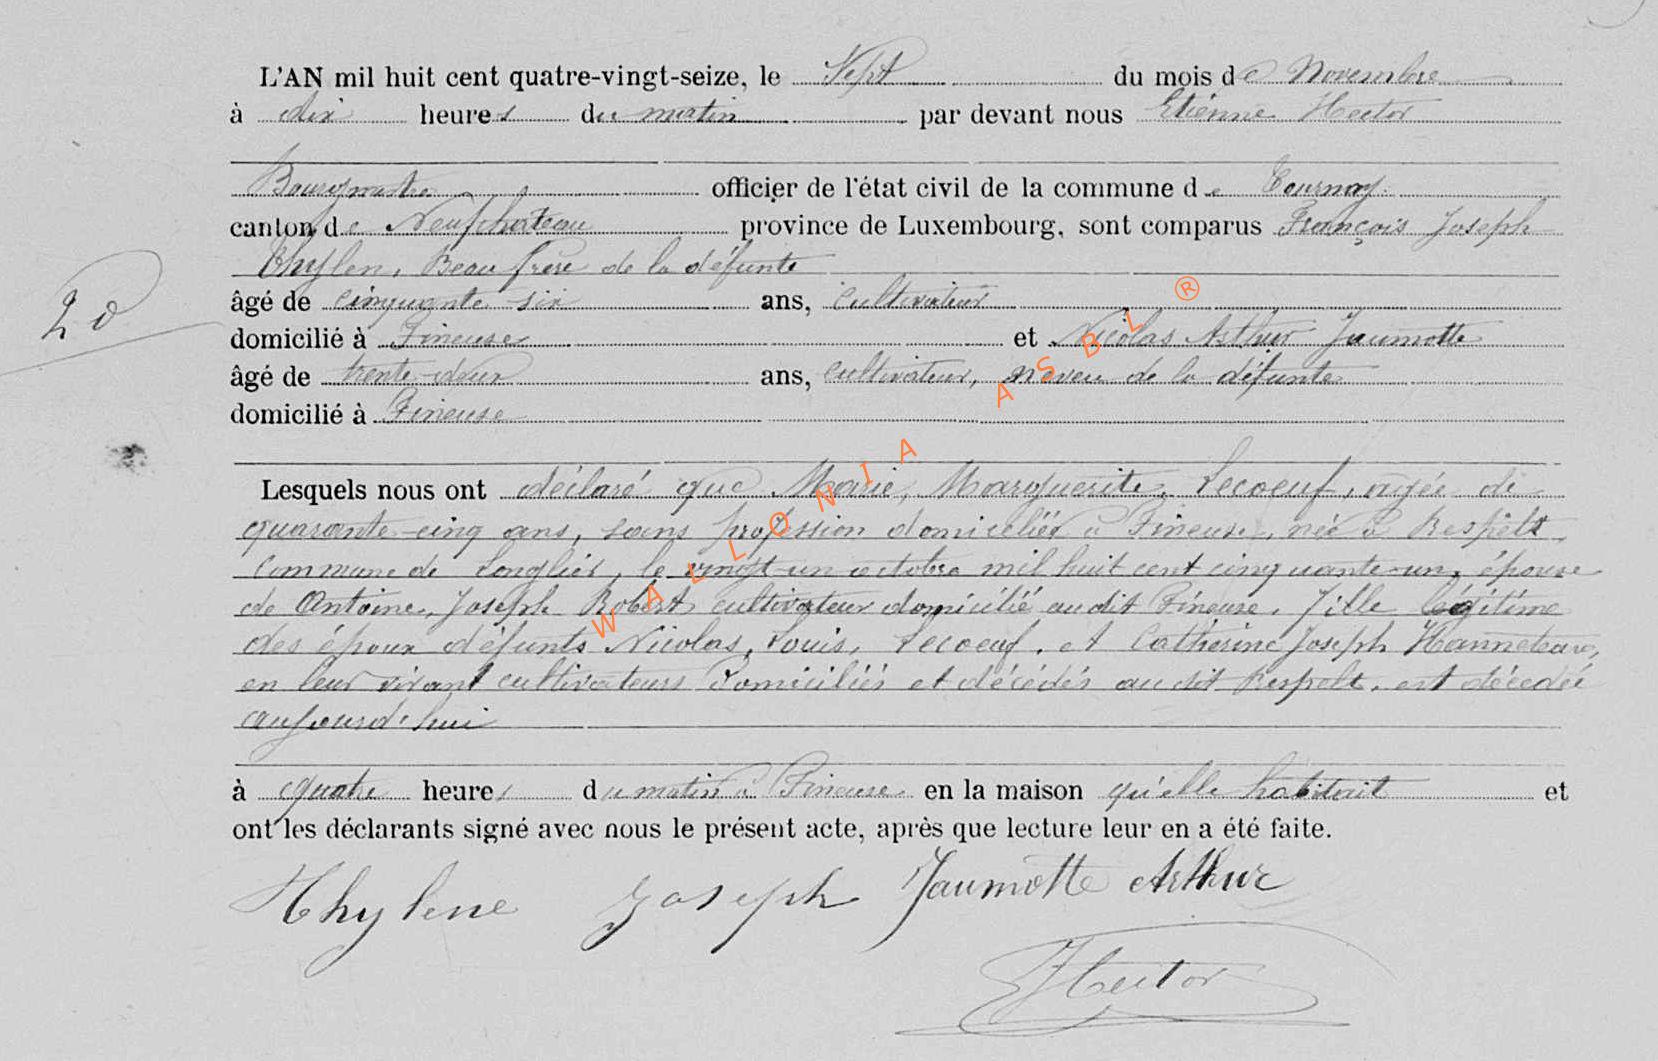 L'AN mil huit cent quatre-vingt-seize, le Sept du mois de Novembre
à dix heures du matin par devant nous Etienne Hector
Bourgmestre officier de l'état civil de la commune de Tournay
canton de Neufchateau province de Luxembourg, sont comparus François Joseph
Thylen, Beau frère de la défunte
20
âgé de cinquante six ans, cultivateur
domicilié à Fineuse et Nicolas Arthur Jaumotte
âgé de trente-deux ans, cultivateur, neveu de la défunte
domicilié à Fineuse
Lesquels nous ont déclaré que Marie, Marguerite, Lecoeuf, agée de
quarante-cinq ans, sans profession domiciliée à Fineuse, née à Respelt
commune de Longlier, le vingt-un octobre mil huit cent cinquante-un, épouse
de Antoine, Joseph Robert cultivateur domicilié audit Fineuse, fille légitime
des époux défunts Nicolas, Louis, Lecoeuf, et Catherine Joseph Hanneteaux,
en leur vivant cultivateurs domiciliés et décédés au dit Respelt, est décédée
aujourd'hui
à quatre heures du matin à Fineuse en la maison qu'elle habitait et
ont les déclarants signé avec nous le présent acte, après que lecture leur en a été faite.
Thylene Joseph Jaumotte Arthur
Hector
WALLONIA ASBL ®